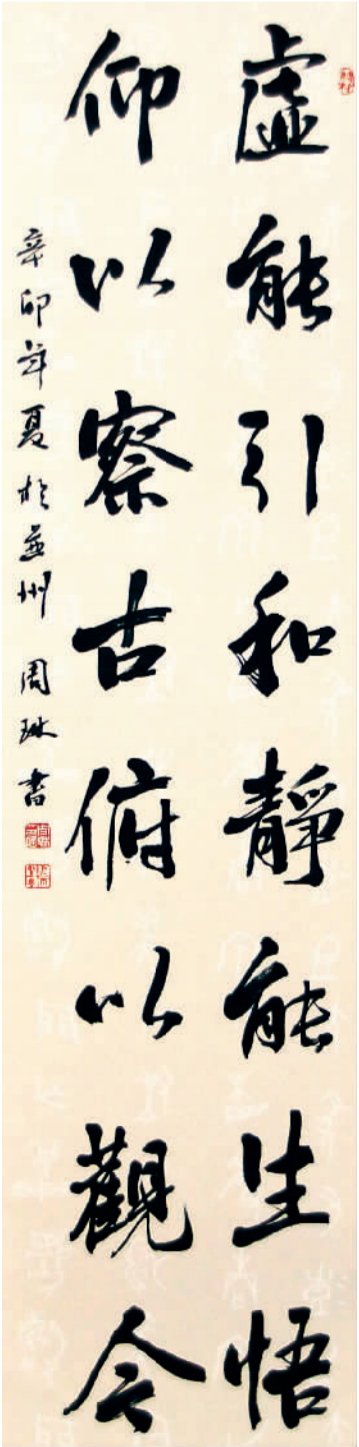 虛能引和靜能生悟
仰以察古俯以觀今
辛卯年夏於並州 周琳書